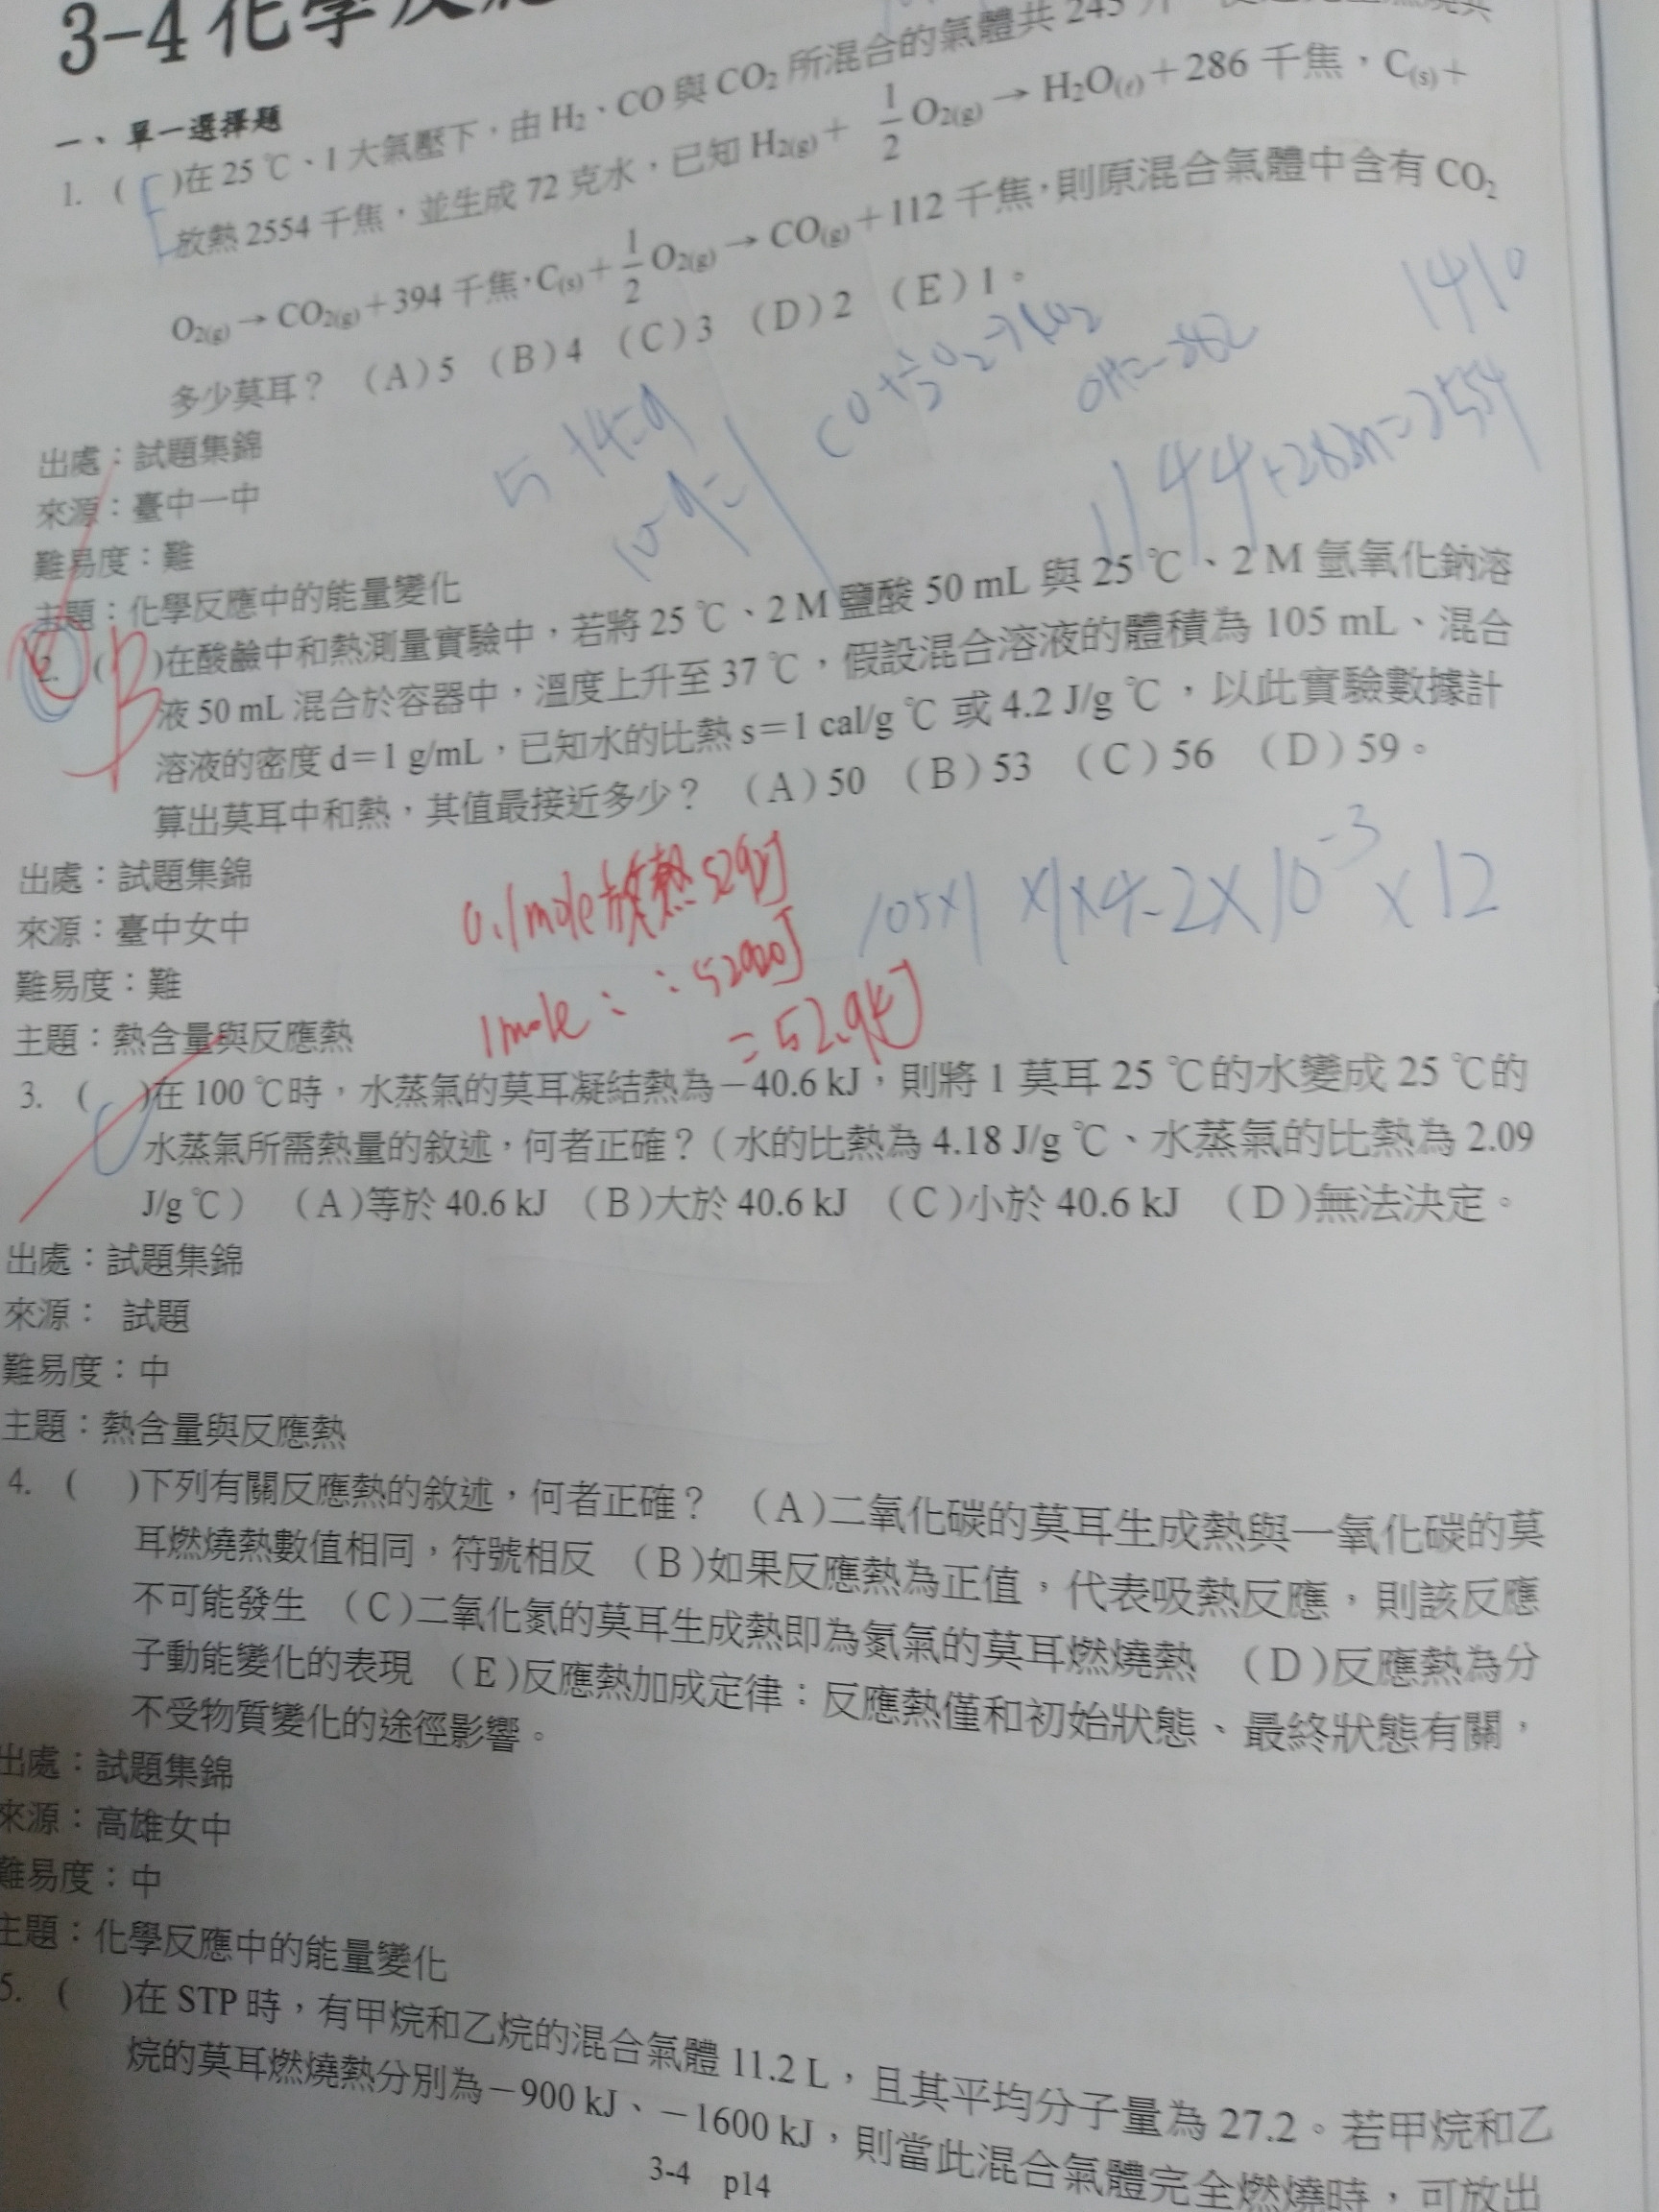 3-4 化學反應
一、單一選擇題
1. ( E )在 25 ℃、1 大氣壓下,由 H₂、CO 與 CO₂ 所混合的氣體共 245
放熱 2554 千焦,並生成 72 克水,已知 H₂(g)+ 1/2 O₂(g) → H₂O(ℓ)+286 千焦,C(s)+
O₂(g) → CO₂(g)+394 千焦,C(s)+ 1/2 O₂(g) → CO(g)+112 千焦,則原混合氣體中含有 CO₂
多少莫耳? (A)5 (B)4 (C)3 (D)2 (E)1。
1410
CO+1/2O₂→CO₂
ΔH=-282
5+4=9
10-9=1
1144+282n=2554
出處:試題集錦
來源:臺中一中
難易度:難
主題:化學反應中的能量變化
2. ( B )在酸鹼中和熱測量實驗中,若將 25 ℃、2 M 鹽酸 50 mL 與 25 ℃、2 M 氫氧化鈉溶
液 50 mL 混合於容器中,溫度上升至 37 ℃,假設混合溶液的體積為 105 mL、混合
溶液的密度 d=1 g/mL,已知水的比熱 s=1 cal/g ℃ 或 4.2 J/g ℃,以此實驗數據計
算出莫耳中和熱,其值最接近多少? (A)50 (B)53 (C)56 (D)59。
出處:試題集錦
來源:臺中女中
難易度:難
主題:熱含量與反應熱
0.1mole放熱5292J
1mole: :52920J
=52.9kJ
105×1×1×4.2×10⁻³×12
3. ( C )在 100 ℃時,水蒸氣的莫耳凝結熱為-40.6 kJ,則將 1 莫耳 25 ℃的水變成 25 ℃的
水蒸氣所需熱量的敘述,何者正確?(水的比熱為 4.18 J/g ℃、水蒸氣的比熱為 2.09
J/g ℃) (A)等於 40.6 kJ (B)大於 40.6 kJ (C)小於 40.6 kJ (D)無法決定。
出處:試題集錦
來源: 試題
難易度:中
主題:熱含量與反應熱
4. ( )下列有關反應熱的敘述,何者正確? (A)二氧化碳的莫耳生成熱與一氧化碳的莫
耳燃燒熱數值相同,符號相反 (B)如果反應熱為正值,代表吸熱反應,則該反應
不可能發生 (C)二氧化氮的莫耳生成熱即為氮氣的莫耳燃燒熱 (D)反應熱為分
子動能變化的表現 (E)反應熱加成定律:反應熱僅和初始狀態、最終狀態有關,
不受物質變化的途徑影響。
出處:試題集錦
來源:高雄女中
難易度:中
主題:化學反應中的能量變化
5. ( )在 STP 時,有甲烷和乙烷的混合氣體 11.2 L,且其平均分子量為 27.2。若甲烷和乙
烷的莫耳燃燒熱分別為-900 kJ、-1600 kJ,則當此混合氣體完全燃燒時,可放出
3-4 p14